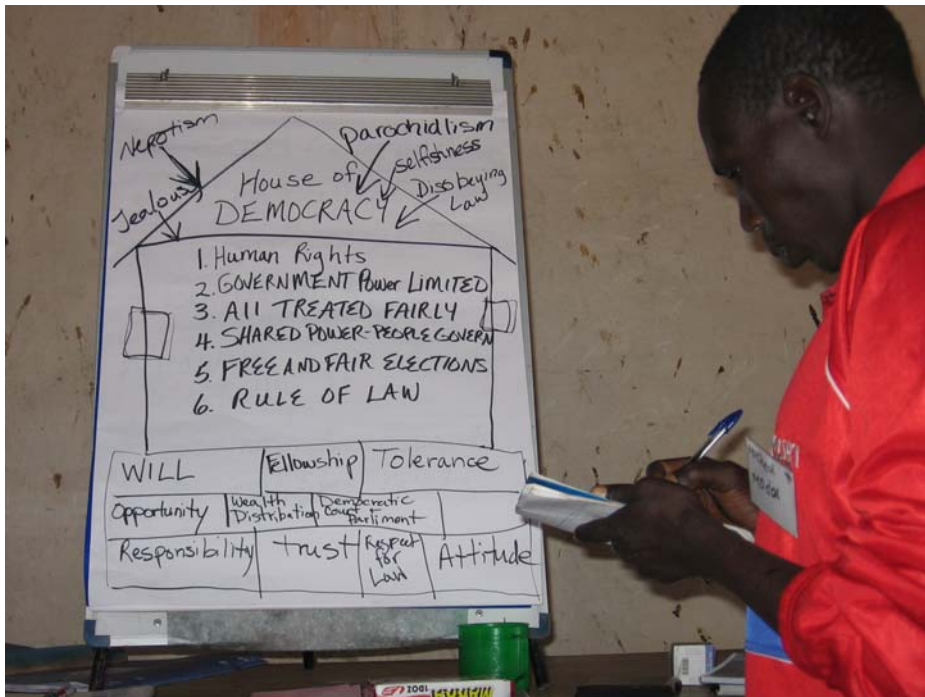 Nepotism
parochidlism
selfishness
Disobeying
Law
Jealousy
House of
DEMOCRACY
1. Human Rights
2. GOVERNMENT Power Limited
3. All TREATED FAIRLY
4. SHARED POWER-PEOPLE GOVERN
5. FREE AND FAIR ELECTIONS
6. RULE OF LAW
WILL
Fellowship
Tolerance
Opportunity
Wealth
Distribution
Democratic
Court +
Parliment
Responsibility
trust
Respect
for
Law
Attitude